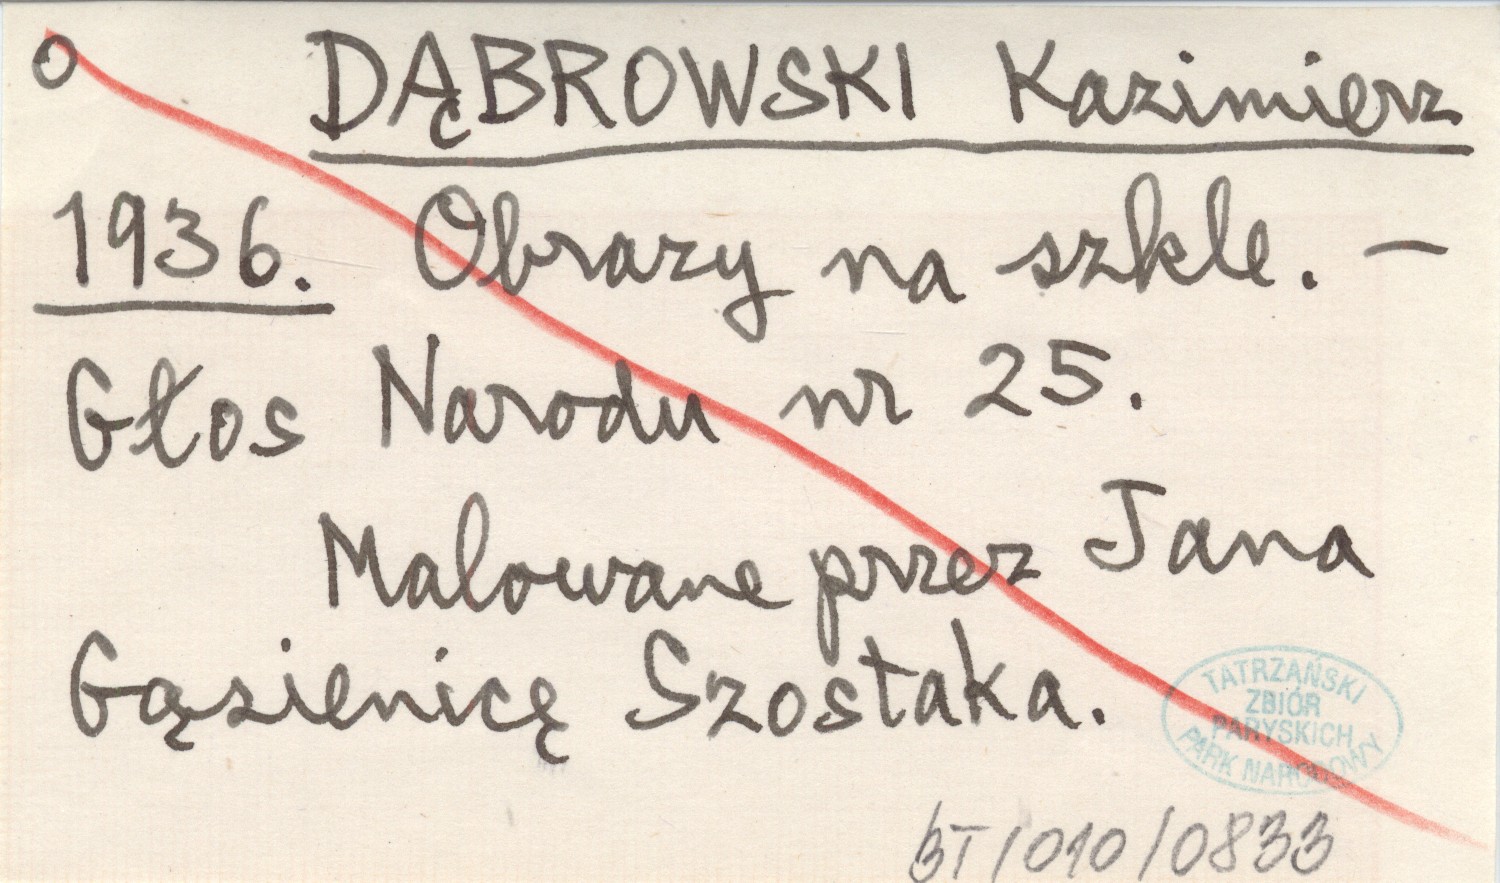 o DĄBROWSKI Kazimierz
1936. Obrazy na szkle. —
Głos Narodu nr 25.
Malowane przez Jana
Gąsienicę Szostaka.
TATRZAŃSKI
ZBIÓR
PARYSKICH
PARK NARODOWY
BT/010/0833